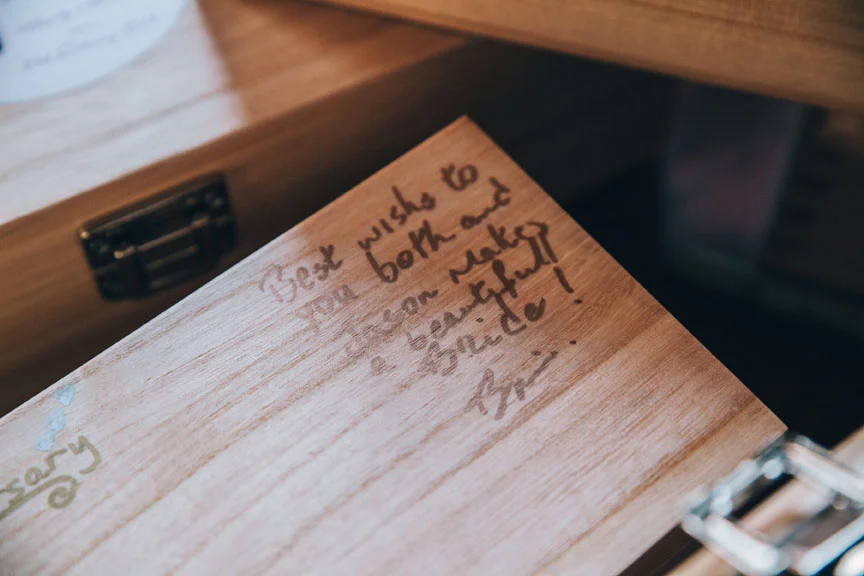 Best wishs to
you both and
Jason makes
a beautyfull
Bride!
sary